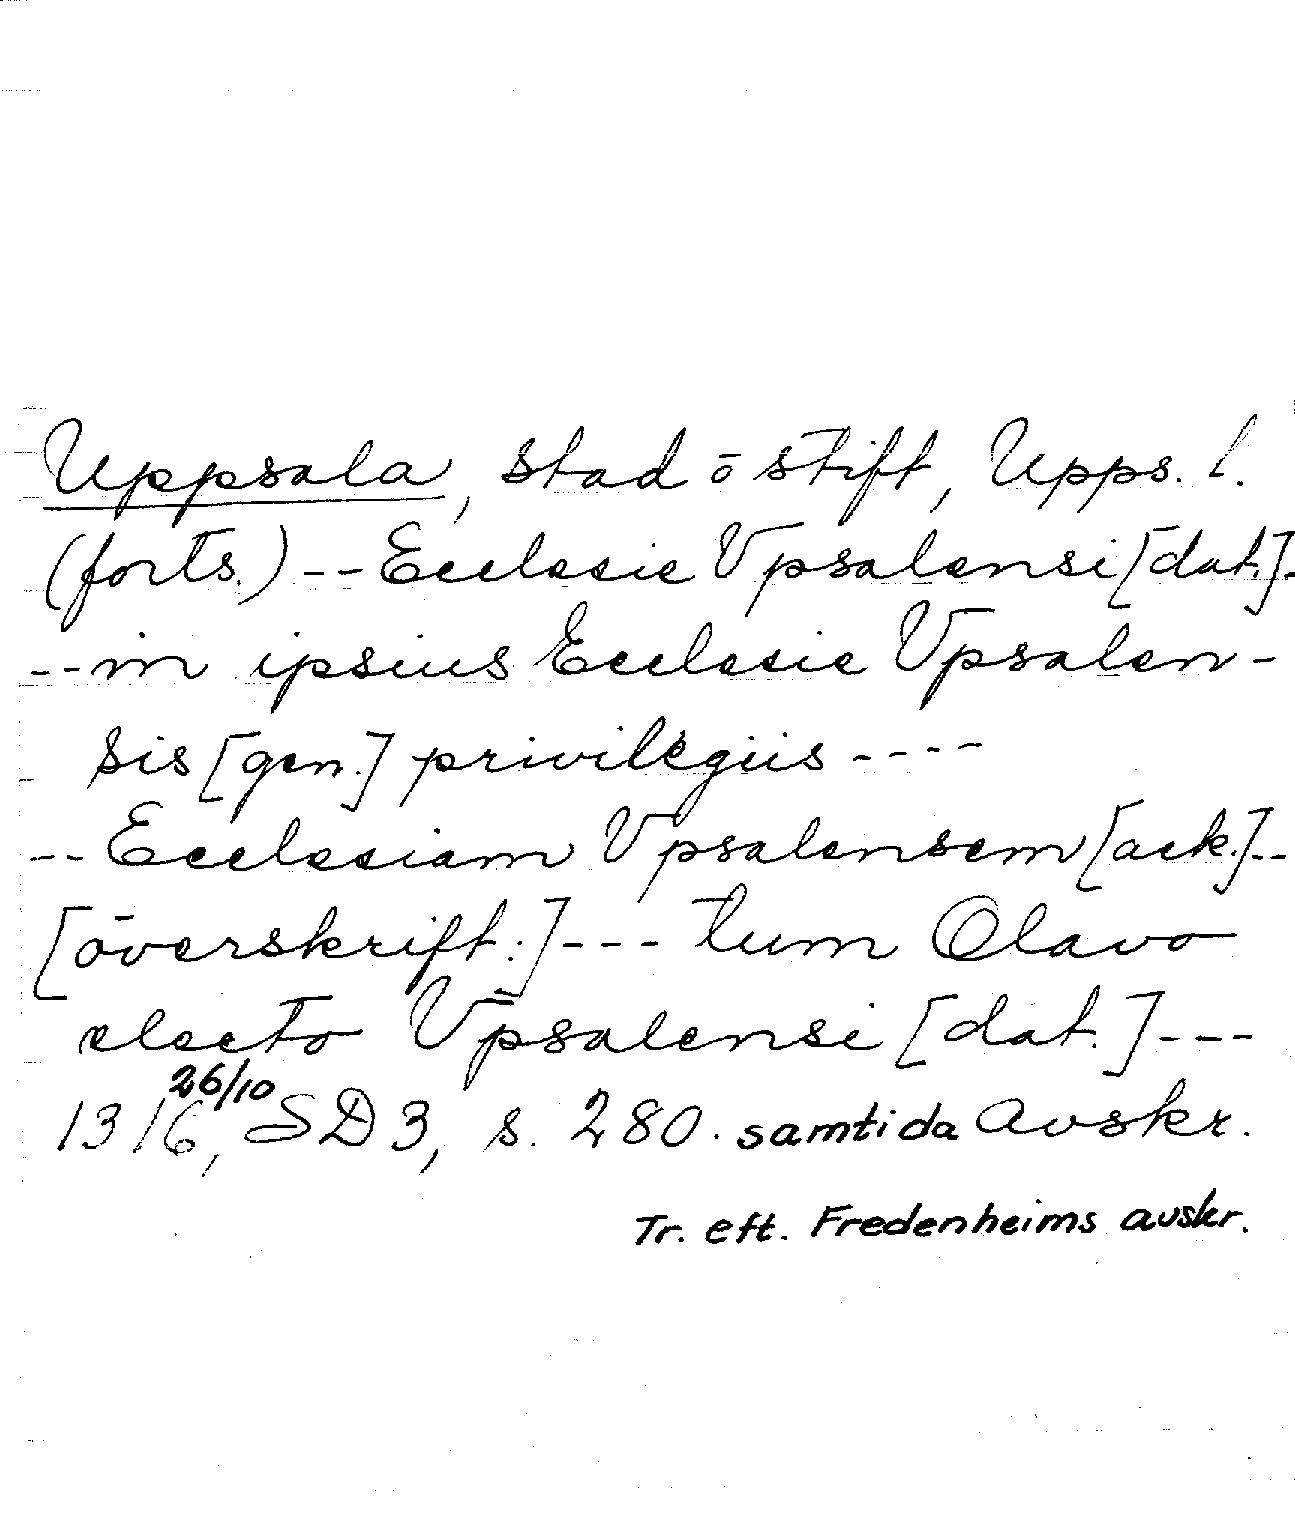 Uppsala, stad ō stift, Upps. l.
(forts.) -- Ecclesie Vpsalensi [dat.]-
-- in ipsius Ecclesie Vpsalen-
sis [gen.] privilegiis ----
-- Ecclesiam Vpsalensem [ack.]--
[överskrift:] --- tum Olavo
electo Vpsalensi [dat.] ---
26/10
1316, SD 3, s. 280. samtida Avskr.
Tr. eft. Fredenheims avskr.